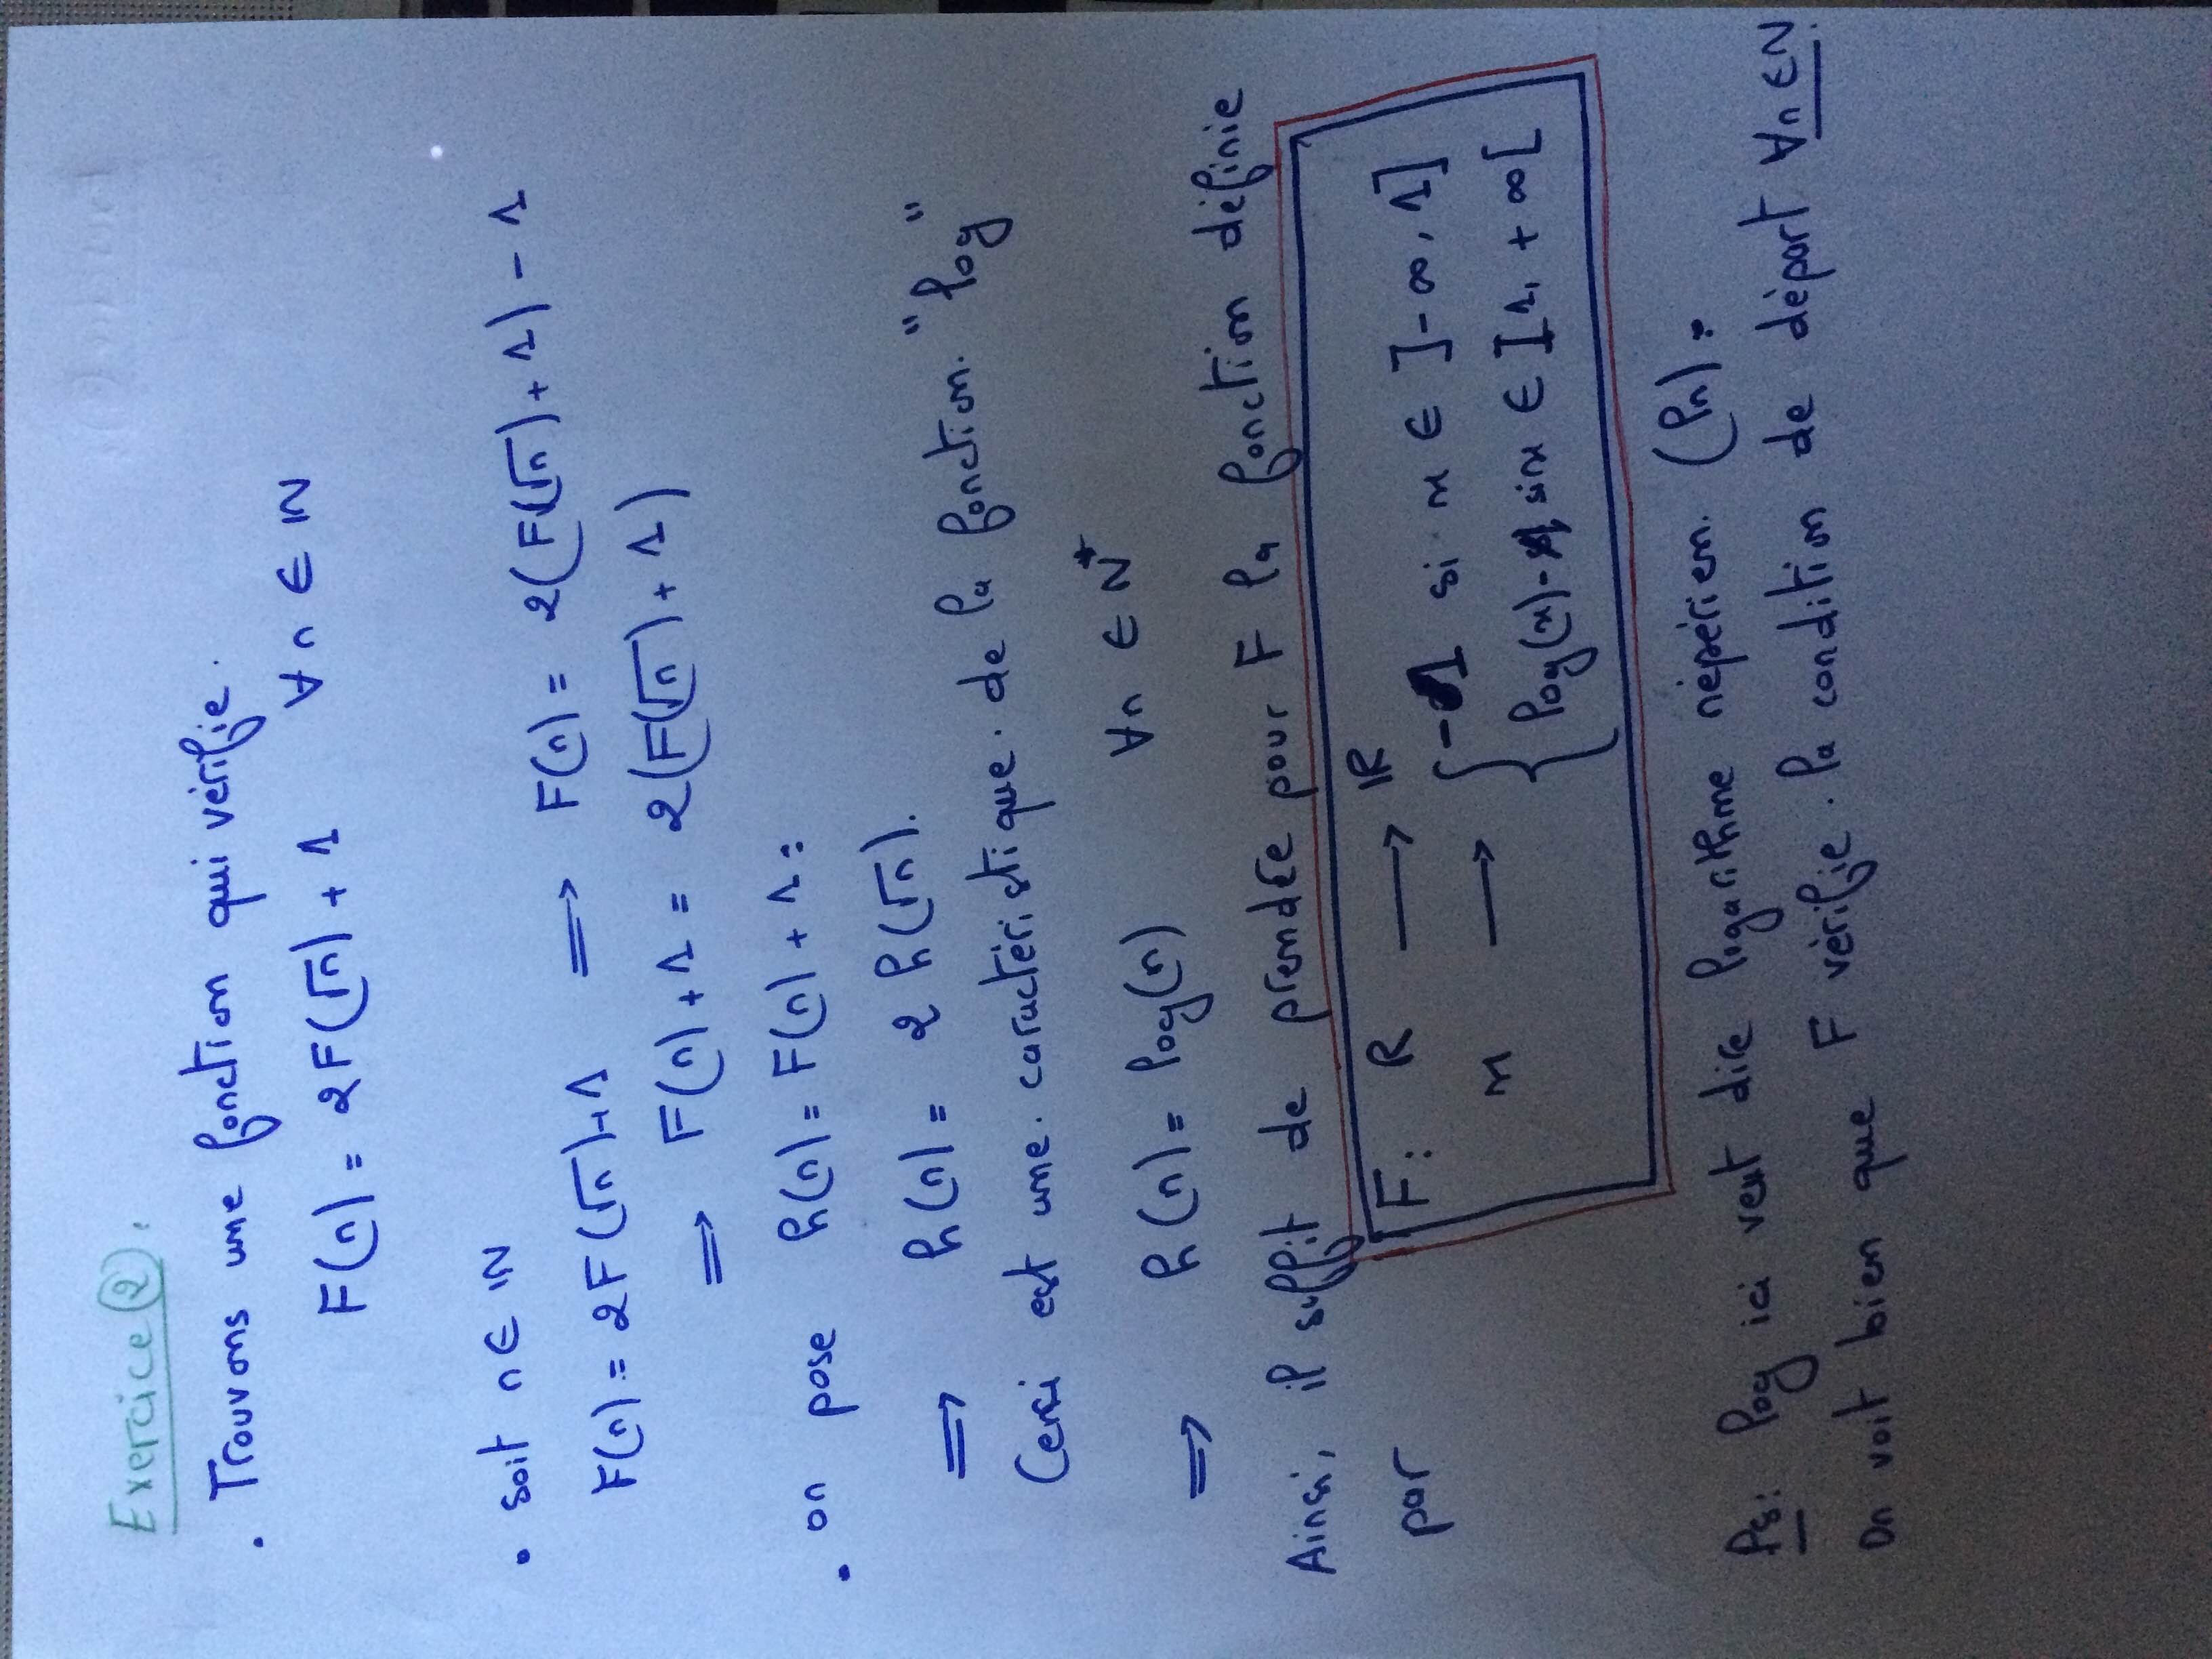 Exercice ② :
. Trouvons une fonction qui vérifie.
F(n) = 2F(√n) + 1 ∀n ∈ ℕ
• soit n ∈ ℕ
F(n) = 2F(√n)+1 ⟹ F(n) = 2(F(√n)+1) - 1
⟹ F(n)+1 = 2(F(√n)+1)
. on pose h(n) = F(n)+1 :
⟹ h(n) = 2h(√n).
est une caractéristique de la fonction "log"
⟹ h(n) = log(n) ∀n ∈ N*
Ainsi, il suffit de prendre pour F la fonction définie
par
F: R ⟶ ℝ
x ⟶ { -1 si x ∈ ]-∞, 1]
log(x)-1 si x ∈ [1, +∞[
Ps: log ici veut dire logarithme népérien. (ln).
On voit bien que F vérifie la condition de départ ∀n ∈ N.